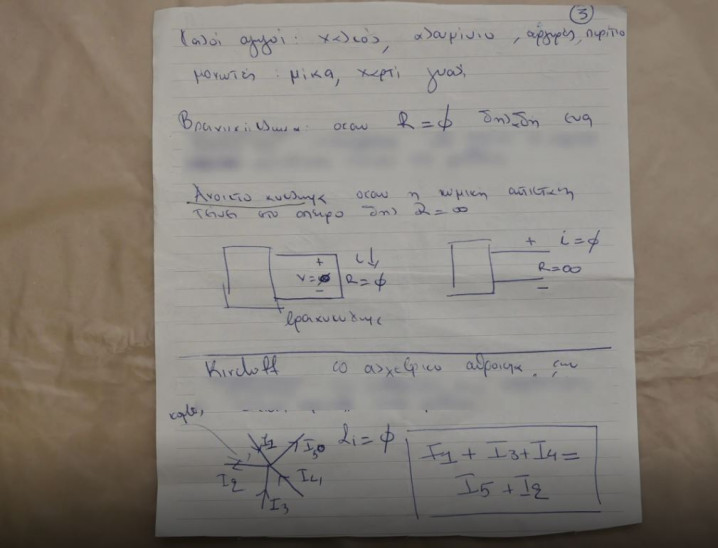 3
Καλοί αγωγοί: χαλκός, αλουμίνιο, άργυρος,
μονωτές: μίκα, χαρτί γυαλί
Βραχυκύκλωμα: οταν R = ϕ δηλαδή ένα
Ανοικτο κυκλωμα οταν η ωμικη αντισταση
τείνει στο απειρο δηλ R = ∞
+ i ↓
V = ϕ R = ϕ
−
+ i = ϕ
R = ∞
−
βραχυκυκλωμα
Kirchoff το αλγεβρικο αθροισμα των
κομβος
I1 I5 Σi = ϕ
I2 I4
I3
I1 + I3 + I4 =
I5 + I2